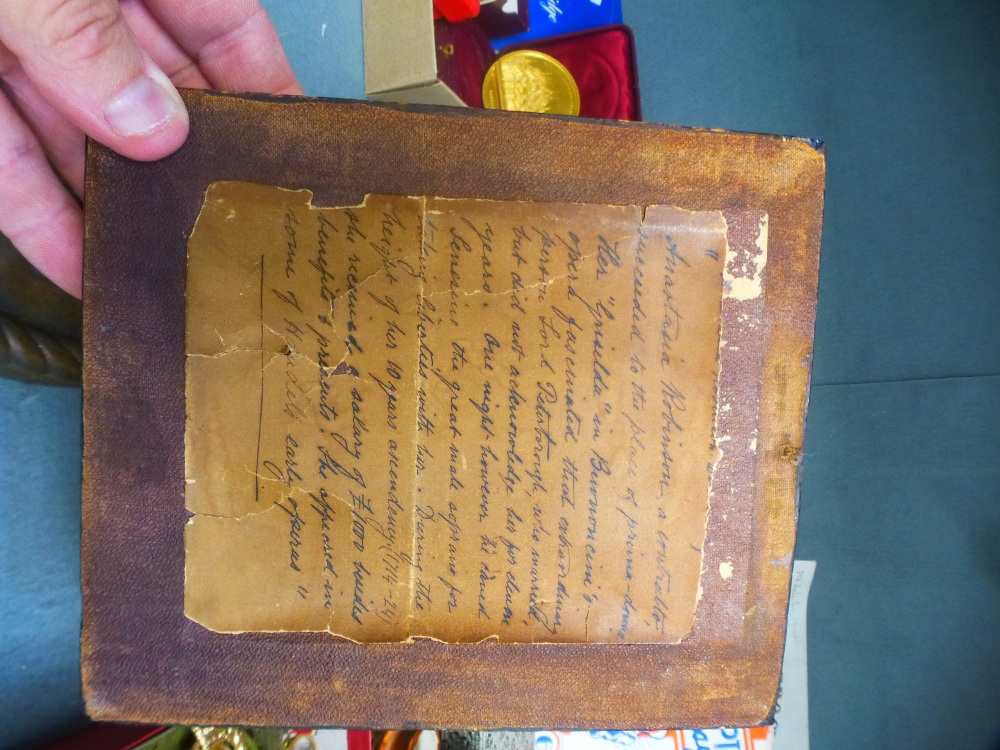 "Anastasia Robinson, a contralto
succeeded to the place of prima-donna
Her "Griselda" in Buononcini's
opera fascinated that extraordinary
person Lord Peterborough, who married,
but did not acknowledge her for eleven
years. One night however he caned
Senesino the great male soprano for
taking liberties with her. During the
height of her 10 years ascendancy (1714-24)
she received a salary of £1,000 besides
benefits & presents. She appeared in
some of Handel's early operas"
idge